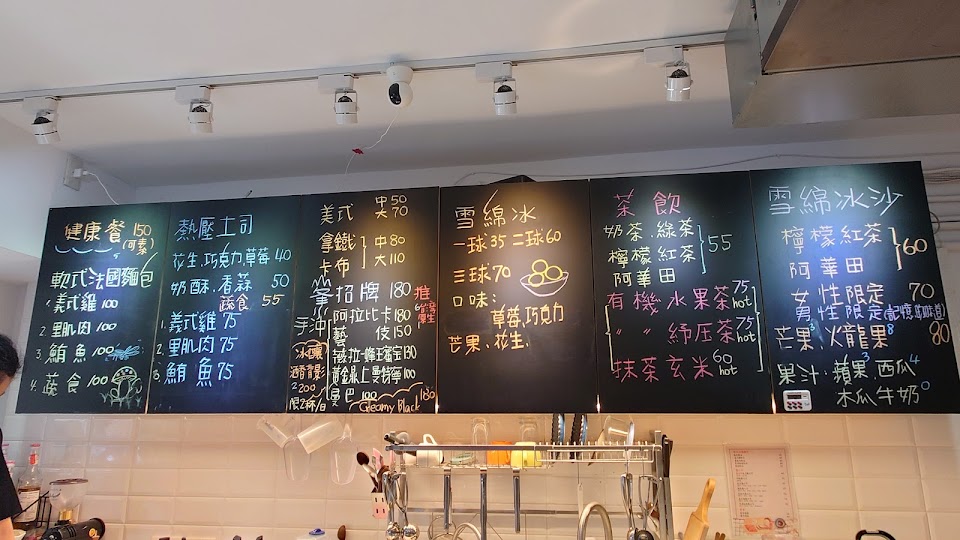 健康餐 150
(可素)
軟式法國麵包
1. 美式雞 100
2. 里肌肉 100
3. 鮪魚 100
4. 蔬食 100
熱壓土司
花生.巧克力.草莓 40
奶酥.香蒜 50
蔬食 55
1. 美式雞 75
2. 里肌肉 75
3. 鮪魚 75
美式 中 50
大 70
拿鐵 中 80
卡布 大 110
招牌 180
阿拉比卡 180
藝伎 150
手沖
冰釀
酒香
200
限2杯/日
黃金 上 曼特寧 100
曼巴 100
Creamy Black 180
雪綿冰
一球 35 二球 60
三球 70
口味:
草莓.巧克力
芒果.花生.
茶飲
奶茶.綠茶
檸檬紅茶 55
阿華田
有機水果茶 75 hot
〃 〃 紓压茶 75 hot
抹茶玄米 60 hot
雪綿冰沙
檸檬紅茶 60
阿華田
女性限定 70
男性限定
芒果 火龍果 80
果汁:蘋果.西瓜
木瓜牛奶